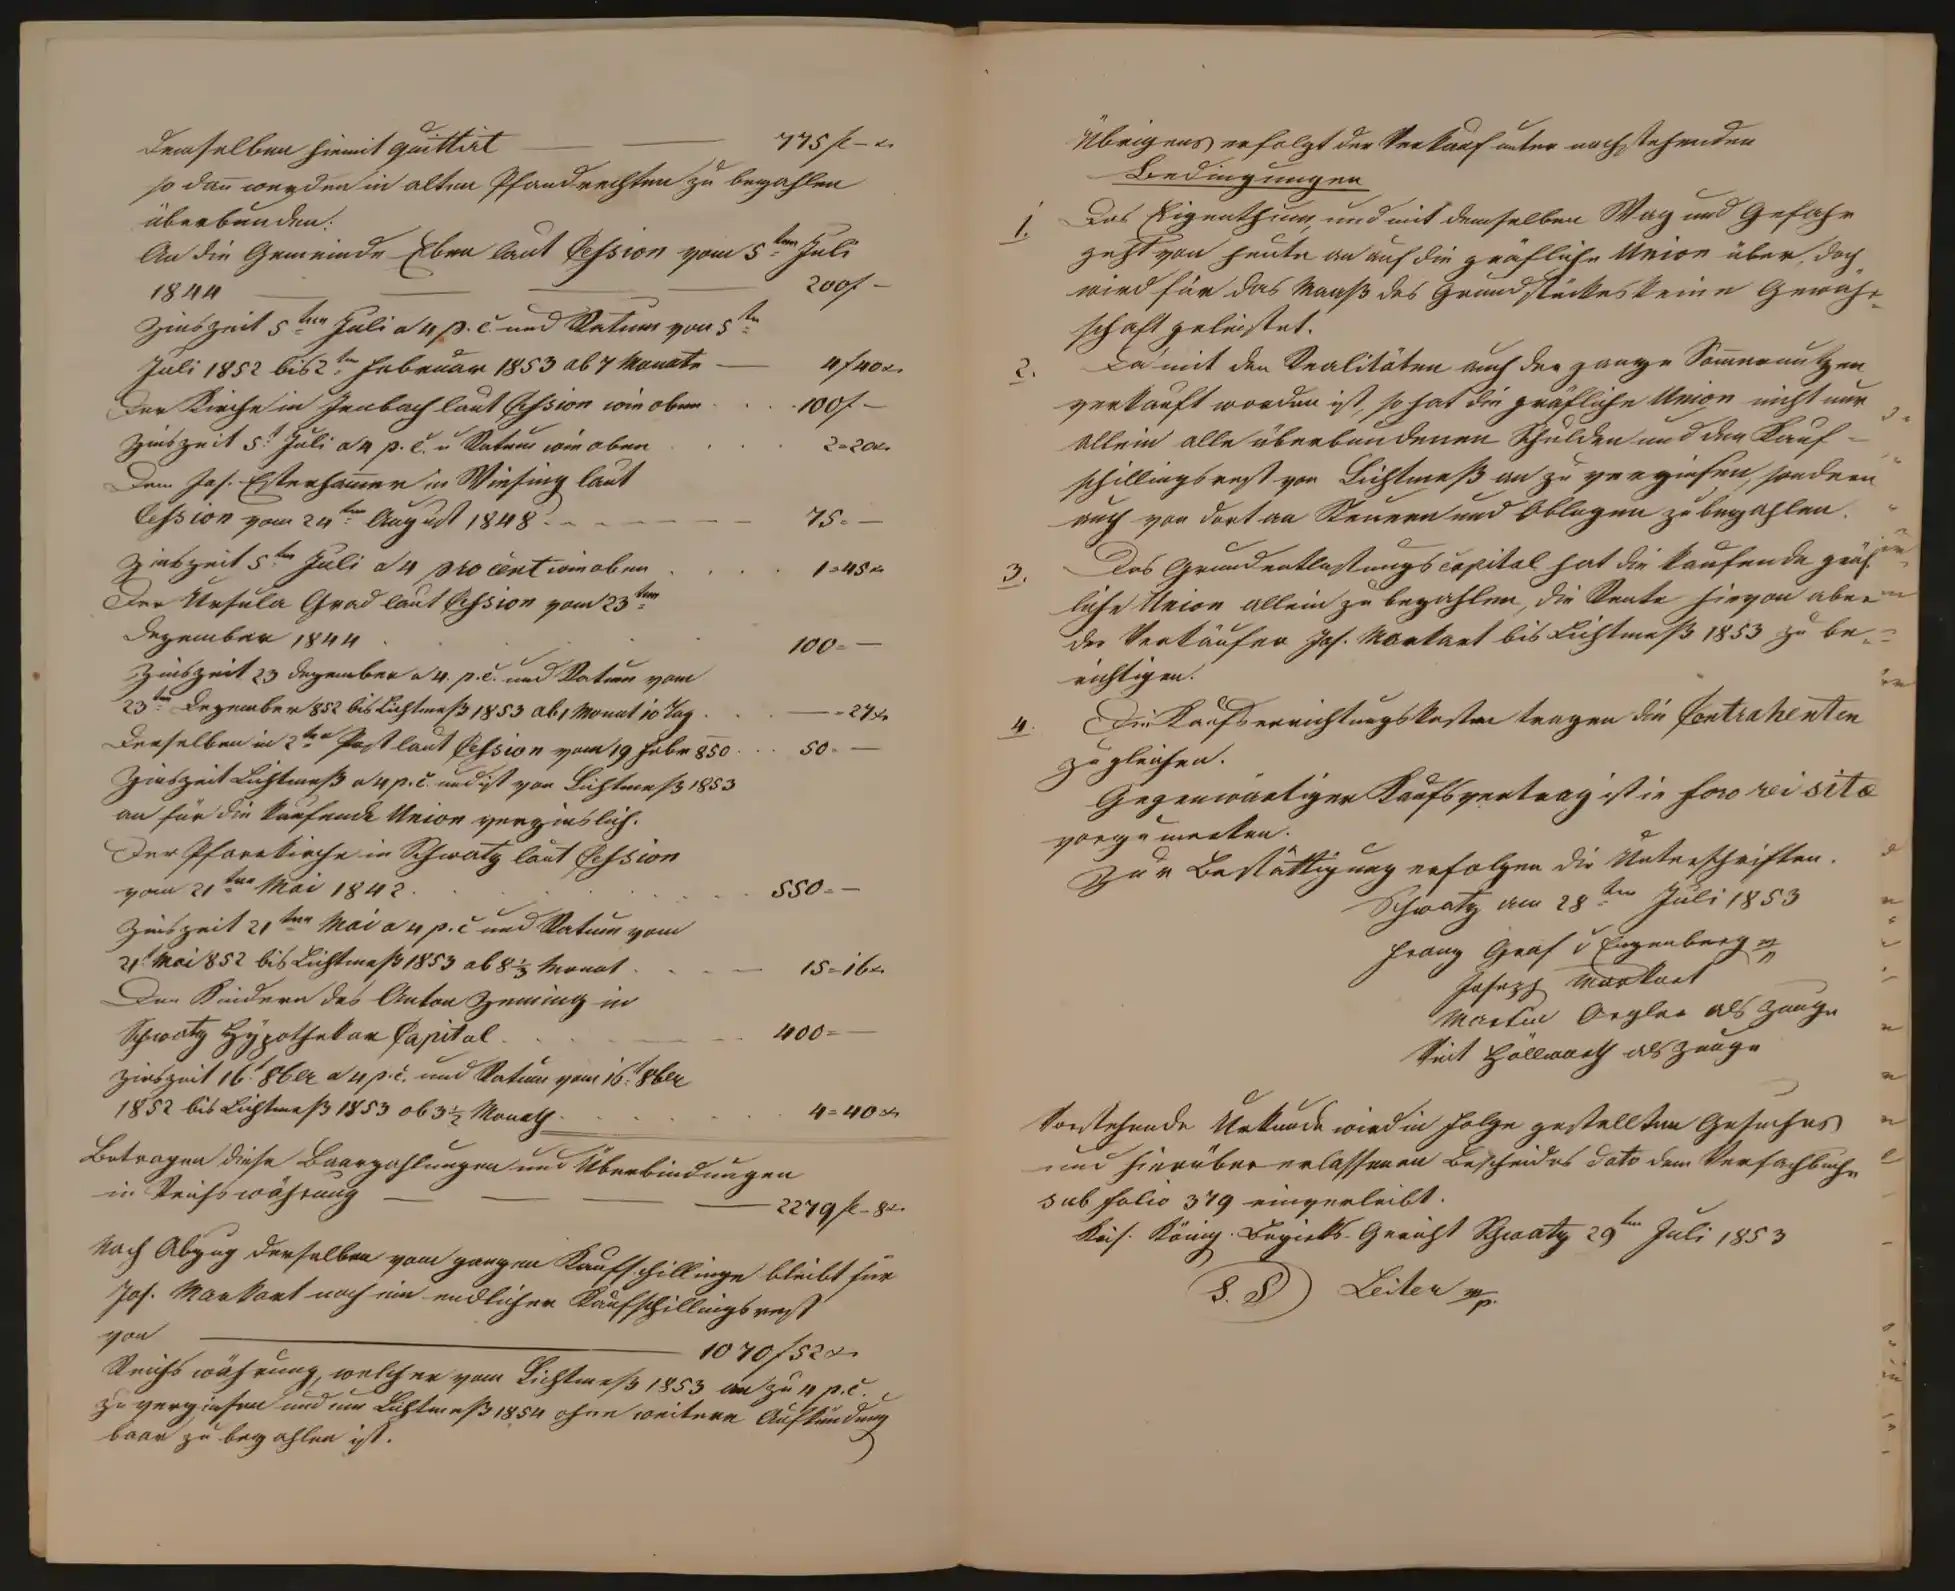 demselben hiemit quittirt — — 775 f – x.
so dan̄ werden in alten Pfandrechten zu bezahlen
überbunden:
An die Gemeinde Eben laut Cession vom 5ten Juli
1844 — — — 200 f –
Zinszeit 5ten Juli a 4 p. c. und Ratum von 5ten
Juli 1852 bis 2ten Februar 1853 ab 7 Monate — 4 f 40 x.
Der Kirche in Jenbach laut Cession wie oben . . . 100 f –
Zinszeit 5t Juli a 4 p. c. u Ratum wie oben . . . . 2 = 20 x.
Dem Jos. Esterham̄er in Wiesing laut
Cession vom 24ten August 1848 . - - - - - - 75 = —
Zinszeit 5ten Juli a 4 procent wie oben . . . . 1 = 45 x
Der Ursula Grad laut Cession vom 23ten
Dezember 1844 . . . . . . 100 = —
Zinszeit 23 Dezember a 4. p. c. und Ratum vom
23ten Dezember 852 bis Lichtmeß 1853 ab 1 Monat 10 Tag . . . — = 27 x
Derselben in 2ten Post laut Cession vom 19 Febr 850 . . . 50 = —
Zinszeit Lichtmeß a 4 p. c. und ist von Lichtmeß 1853
an für die kaufende Union verzinslich.
Der Pfarrkirche in Schwatz laut Cession
vom 21ten Mai 1842 . . . . . . . 550 = —
Zinszeit 21ten Mai a 4 p. c und Ratum vom
21t Mai 852 bis Lichtmeß 1853 ab 8 1/3 Monat . - - - — 15 = 16 x
Den Kindern des Anton Zeming in
Schwatz Hypothekar Capital . . . . . 400 = —
Zinszeit 16t 8ber a 4 p. c. und Ratum vom 16t 8ber
1852 bis Lichtmeß 1853 ab 3 1/2 Monath . . . . . . 4 = 40 x
Betragen diese Baarzahlungen und Überbindungen
in Reichswährung — — — — 2279 f – 8 x.
Nach Abzug derselben vom ganzen Kaufschillinge bleibt für
Jos. Markart noch ein endlicher Kaufschillingsrest
von — 1070 f 52 x.
Reichswährung, welcher vom Lichtmeß 1853 an zu 4 p. c.
zu verzinsen und um Lichtmeß 1854 ohne weitere Aufkündung
baar zu bezahlen ist.
Übrigens erfolgt der Verkauf unter nachstehenden
Bedingungen
1. Das Eigenthum, und mit demselben Wag und Gefahr
geht von heute an auf die gräfliche Union über, doch
wird für das Maaß des Grundstückes keine Gewähr-
schaft geleistet.
2. Da mit den Realitäten auch der ganze Som̄ernutzen
verkauft worden ist, so hat die gräfliche Union nicht nur
allein alle überbundenen Schulden und den Kauf-
schillingsrest von Lichtmeß an zu verzinsen, sondern
auch von dort an Steuern und Oblagen zu bezahlen.
3. Das Grundentlastungscapital hat die kaufende gräf-
liche Union allein zu bezahlen, die Rente hievon aber
der Verkäufer Jos. Markart bis Lichtmeß 1853 zu be-
richtigen.
4. Die Kaufserrichtungskosten tragen die Contrahenten
zu gleichen.
Gegenwärtiger Kaufsvertrag ist in foro rei sitæ
vorzumerken.
Zur Bestättigung erfolgen die Unterschriften.
Schwatz am 28ten Juli 1853
Franz Graf v Enzenberg mp
Joseph Markart
Martin als Zeuge
Veit Höllwarth als Zeuge
Vorstehende Urkunde wird in Folge gestellten Gesuches
und hierüber erlassenen Bescheides dato dem Verfachbuche
sub folio 379 einverleibt.
Kais. König. Bezirks-Gericht Schwatz 29ten Juli 1853
L. S Leiter mp.